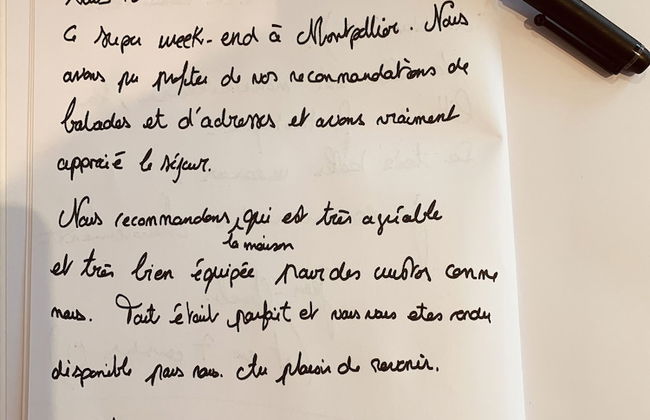 Ce super week-end à Montpellier. Nous
avons pu profiter de vos recommandations de
balades et d'adresses et avons vraiment
apprécié le séjour.
Nous recommandons, qui est très agréable
la maison
et très bien équipée pour des comme
nous. Tout était parfait et vous vous etes rendu
disponible pour nous. Au plaisir de revenir.